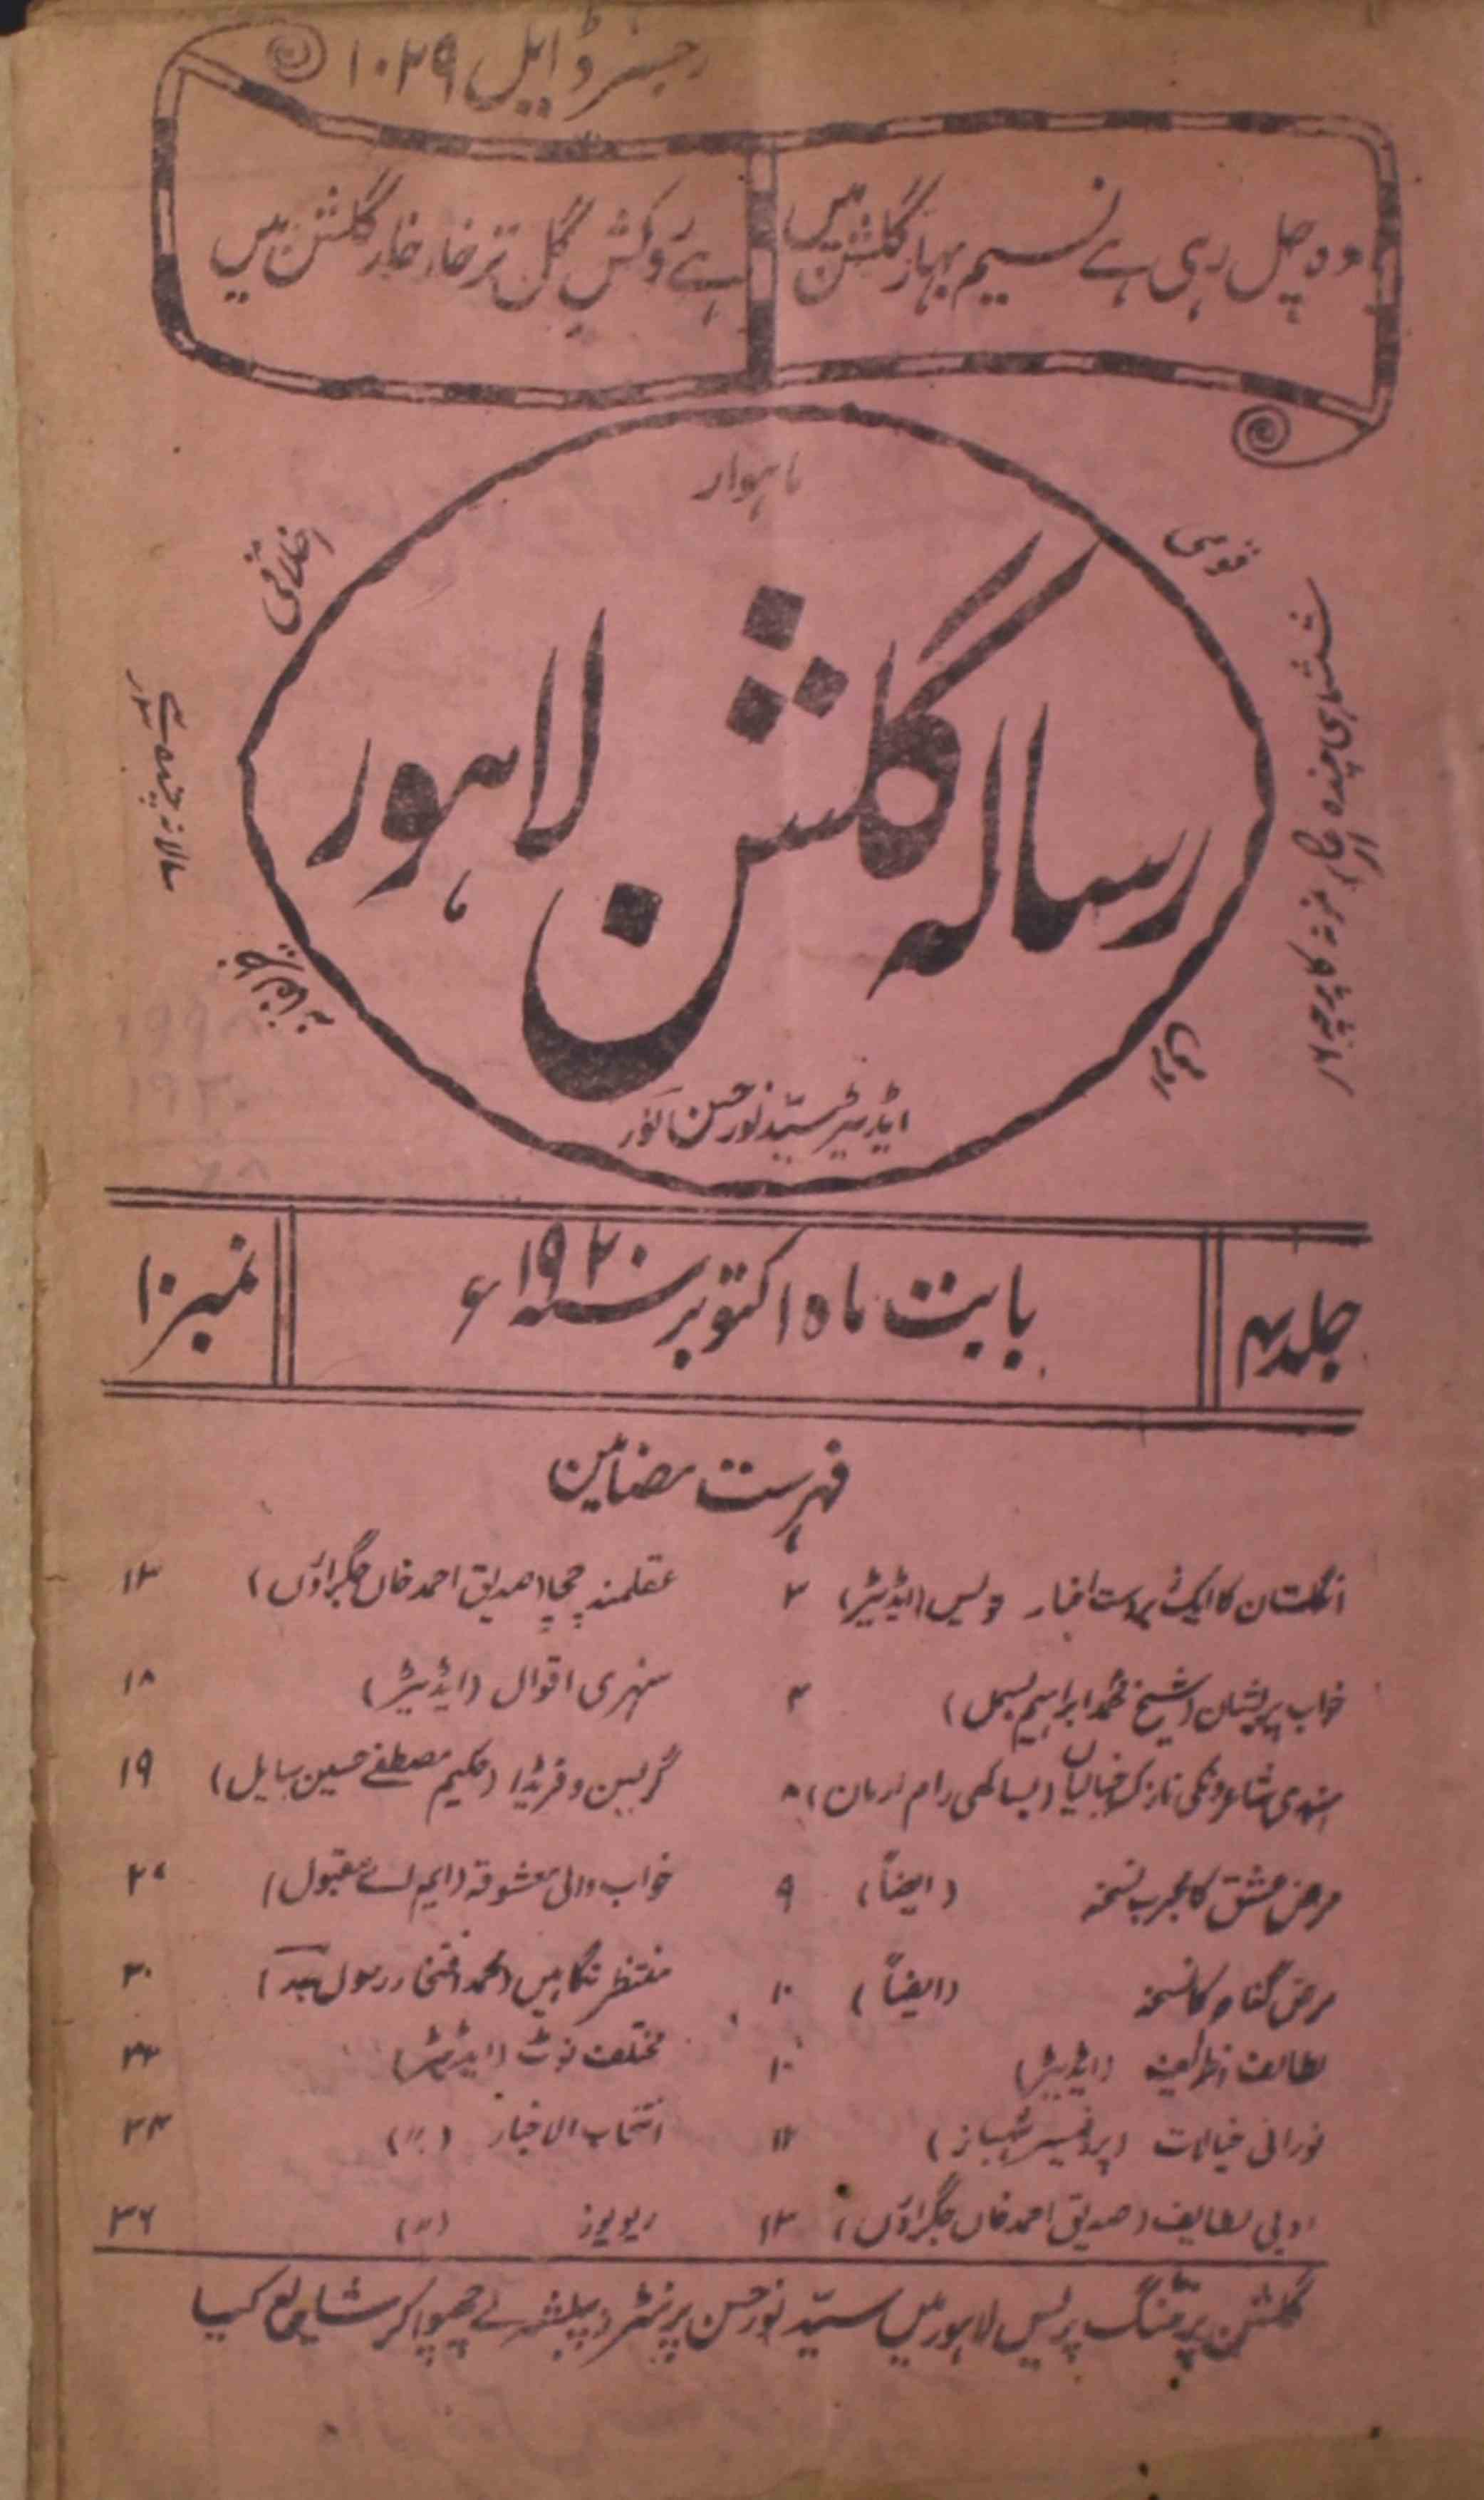 رجسٹرڈ ایل ۱۰۲۹
وہ چل رہی ہے نسیم بہار گلشن میں
ہے روکش گل تر خار خار گلشن میں
ماہوار
قومی
اخلاقی
رسالہ گلشن لاہور
سالانہ چندہ
ششماہی چندہ نمونہ کا پرچہ
ادبی
ایڈیٹر سید نور حسن نور
جلد ۴
بابت ماہ اکتوبر سنہ ۱۹۲۰ء
نمبر ۱۰
فہرست مضامین
انگلستان کا ایک زبردست اخبار نویس (ایڈیٹر) ۲
خواب پریشان (شیخ محمد ابراہیم بسمل) ۴
ہندی شاعروں کی نازک خیالیاں (بساکھی رام ارمان) ۸
مرض عشق کا مجرب نسخہ (ایضاً) ۹
مرض گناہ کا نسخہ (ایضاً) ۱۰
لطائف و ظرائف (ایڈیٹر) ۱۰
نورانی خیالات (پروفیسر شہباز) ۱۲
ادبی لطایف (صدیق احمد خاں جگراؤں) ۱۳
عقلمند چچا (صدیق احمد خاں جگراؤں) ۱۳
سنہری اقوال (ایڈیٹر) ۱۸
گریسن و فریڈا (حکیم مصطفےٰ حسین سایل) ۱۹
خواب والی معشوقہ (ایم اے مقبول)
منتظر نگاہیں (محمد افتخار رسول) ۳۰
مختلف نوٹ (ایڈیٹر) ۳۳
انتخاب الاخبار (〃) ۳۴
ریویوز (〃) ۳۶
گلشن پرنٹنگ پریس لاہور میں سید نور حسن پرنٹر و پبلشر نے چھپوا کر شایع کیا